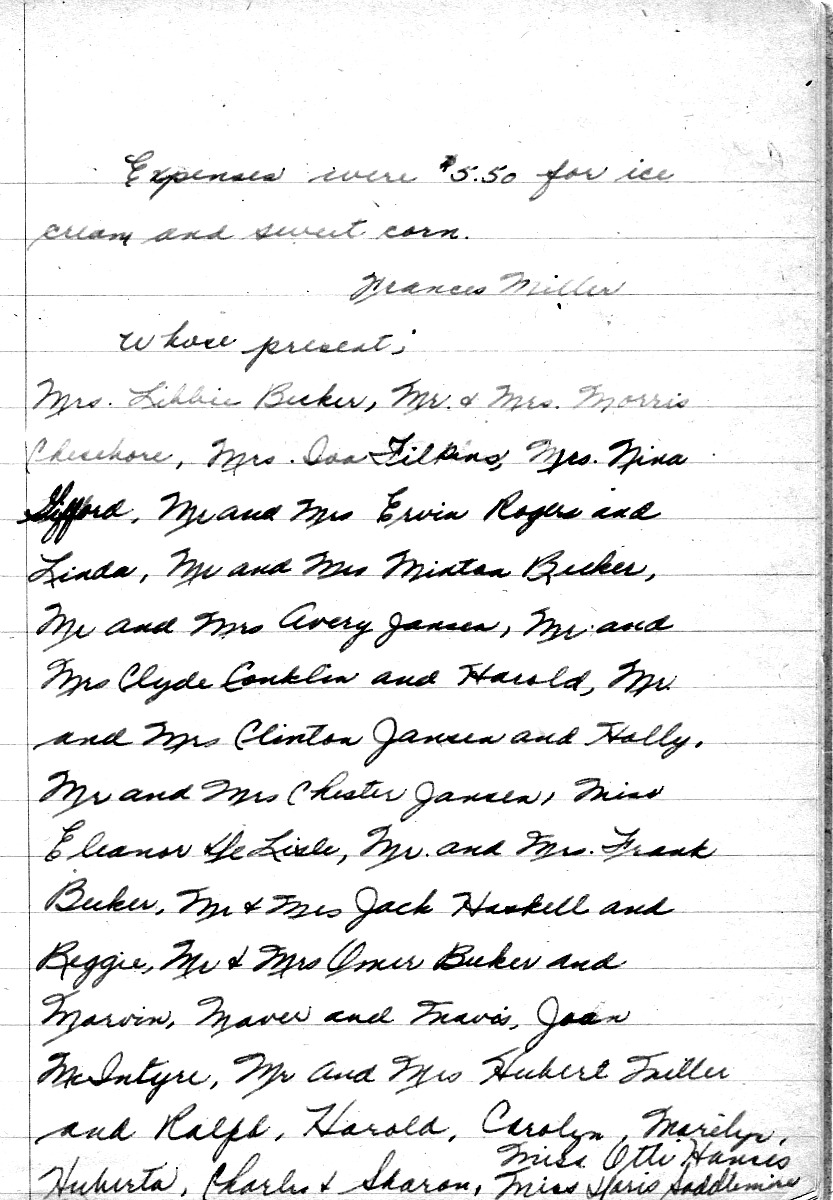 Expenses were $5.50 for ice
cream and sweet corn.
Frances Miller
Whose present;
Mrs. Libbie Becker, Mr. & Mrs. Morris
Cheschore, Mrs. Ioa Filkins, Mrs. Nina
Gifford, Mr and Mrs Ervin Rogers and
Linda, Mr and Mrs Minton Becker,
Mr and Mrs Avery Jansen, Mr. and
Mrs Clyde Conklin and Harold, Mr.
and Mrs Clinton Jansen and Holly,
Mr and Mrs Chester Jansen, Miss
Eleanor De Lisle, Mr. and Mrs. Frank
Becker, Mr & Mrs Jack Haskell and
Reggie, Mr & Mrs Omer Becker and
Marvin, Maver and Travis, Joan
McIntyre, Mr and Mrs Hubert Miller
and Ralph, Harold, Carolyn, Marilyn,
Huberta, Charles & Sharon, Miss Otti Hanses
Miss Doris Saddlemire